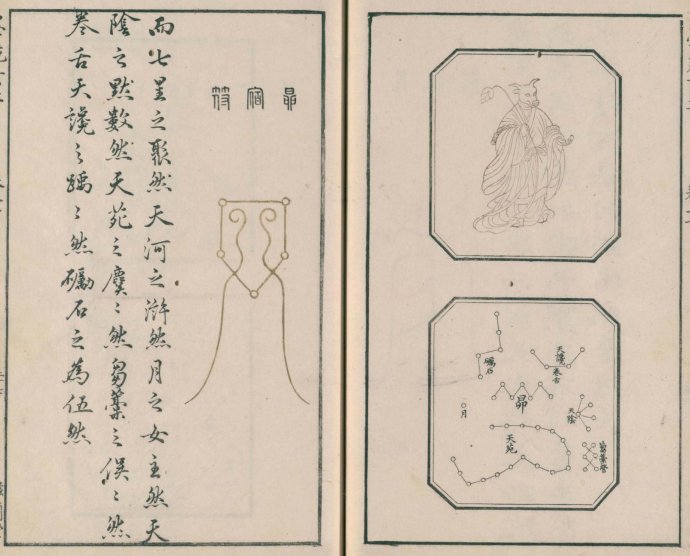 天讒
卷舌
礪石
昴
月
天陰
天苑
昴宿符
而七星之聚然天河之滸然月之女主然天
陰之默數然天苑之麌〻然芻藁之俁〻然
卷舌天讒之踽〻然礪石之為伍然